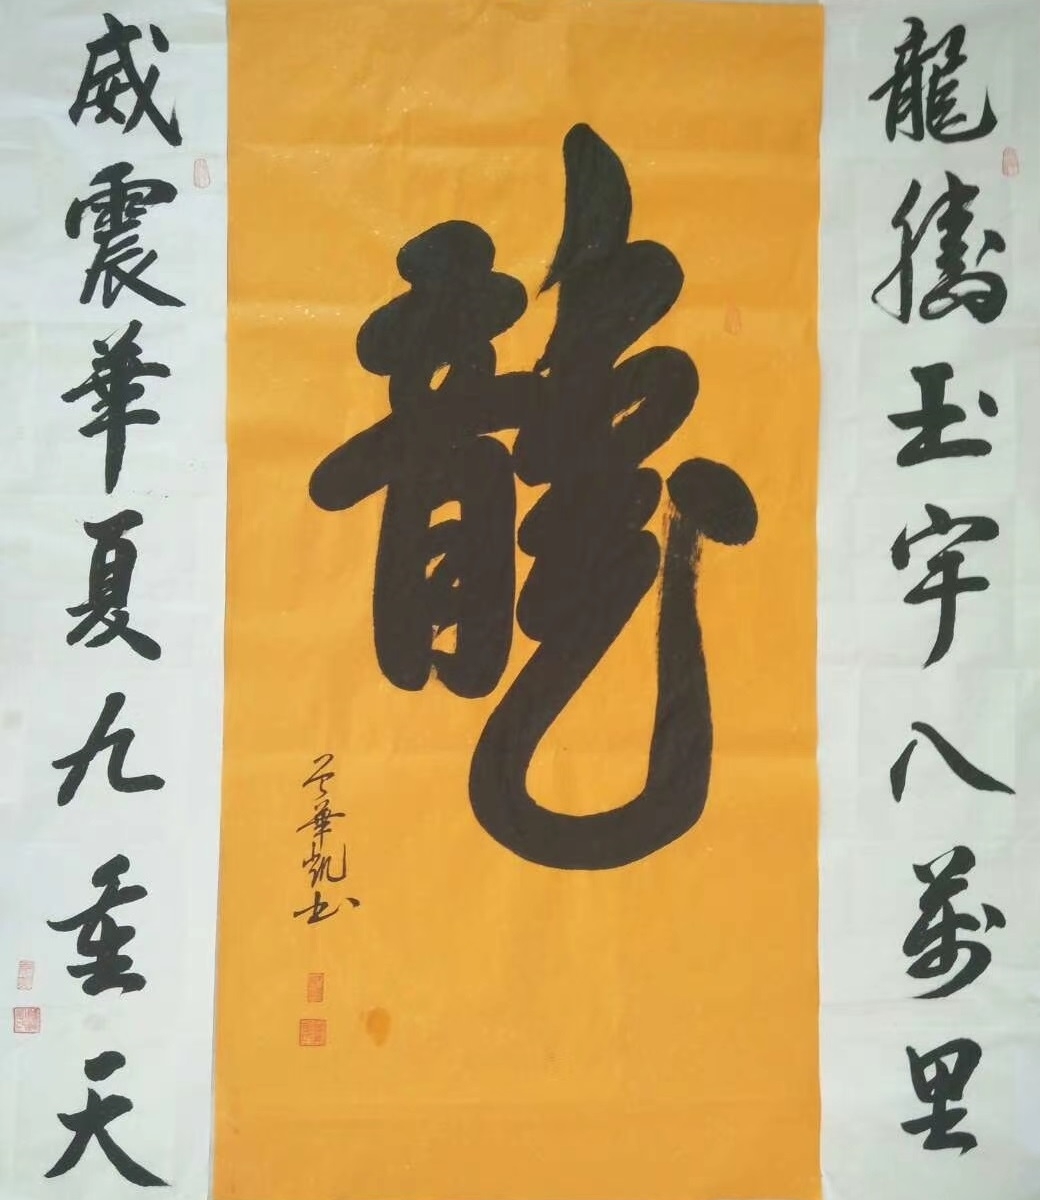 龍騰玉宇八萬里
龍
華凱书
威震華夏九重天